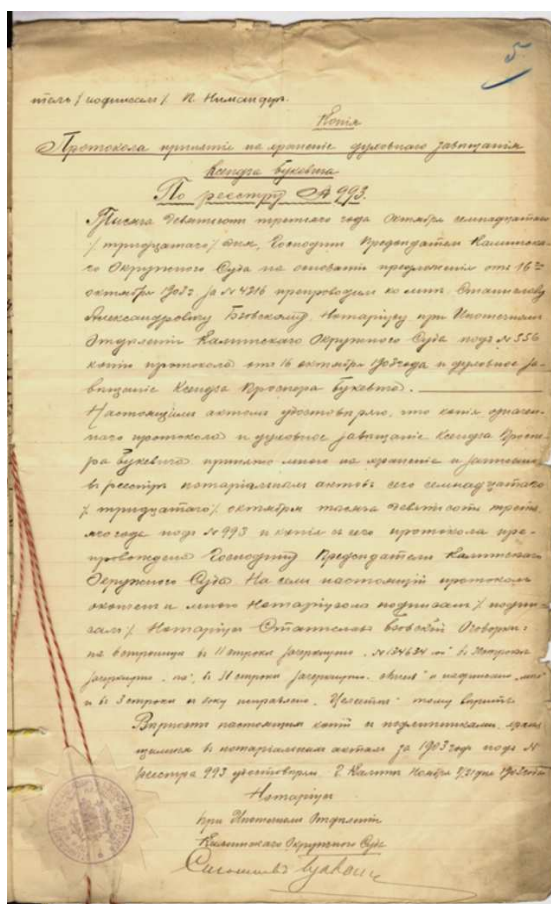 5
тель / подписал / П. Нимандер.
Копія
Протокола принятія на храненіе духовнаго завѣщанія
Ксендза Букевича
По реестру № 993.
Тысяча девятьсотъ третьяго года Октября семнадцатаго
/ тридцатаго / дня, Господинъ Предсѣдатель Калишска-
го Окружнаго Суда на основаніи предложенія отъ 16го
октября 1903 г. за № 4216 препроводилъ ко мнѣ, Станиславу
Александровичу Нотаріусу при Ипотечномъ
Отдѣленіи Калишскаго Окружнаго Суда подъ № 556
копію протокола отъ 16 октября 1903 года и духовное за-
вѣщаніе Ксендза Проспера Букевича.
Настоящимъ актомъ удостовѣряю, что копія означен-
наго протокола и духовное завѣщаніе Ксендза Проспе-
ра Букевича принято мною на храненіе и записано
въ реестръ нотаріальныхъ актовъ сего семнадцатаго
/ тридцатаго / октября тысяча девятьсотъ треть-
яго года подъ № 993 и копія съ сего протокола пре-
провождена Господину Предсѣдателю Калишскаго
Окружнаго Суда. На семъ настоящій протоколъ
оконченъ и мною Нотаріусомъ подписанъ / подпи-
салъ / Нотаріусъ Станиславъ Оговорка:
въ 11 строкѣ зачеркнуто въ строкѣ
зачеркнуто "по", въ строкѣ зачеркнуто
и въ 3 строкѣ исправлено тому вѣрить.
Вѣрность настоящихъ копій съ подлинниками, хра-
щимися въ нотаріальныхъ актахъ за 1903 годъ подъ №
реестра 993 удостовѣряю. Г. Калишъ Ноября дня 1903 года
Нотаріусъ
при Ипотечномъ Отдѣленіи
Калишскаго Окружнаго Суда